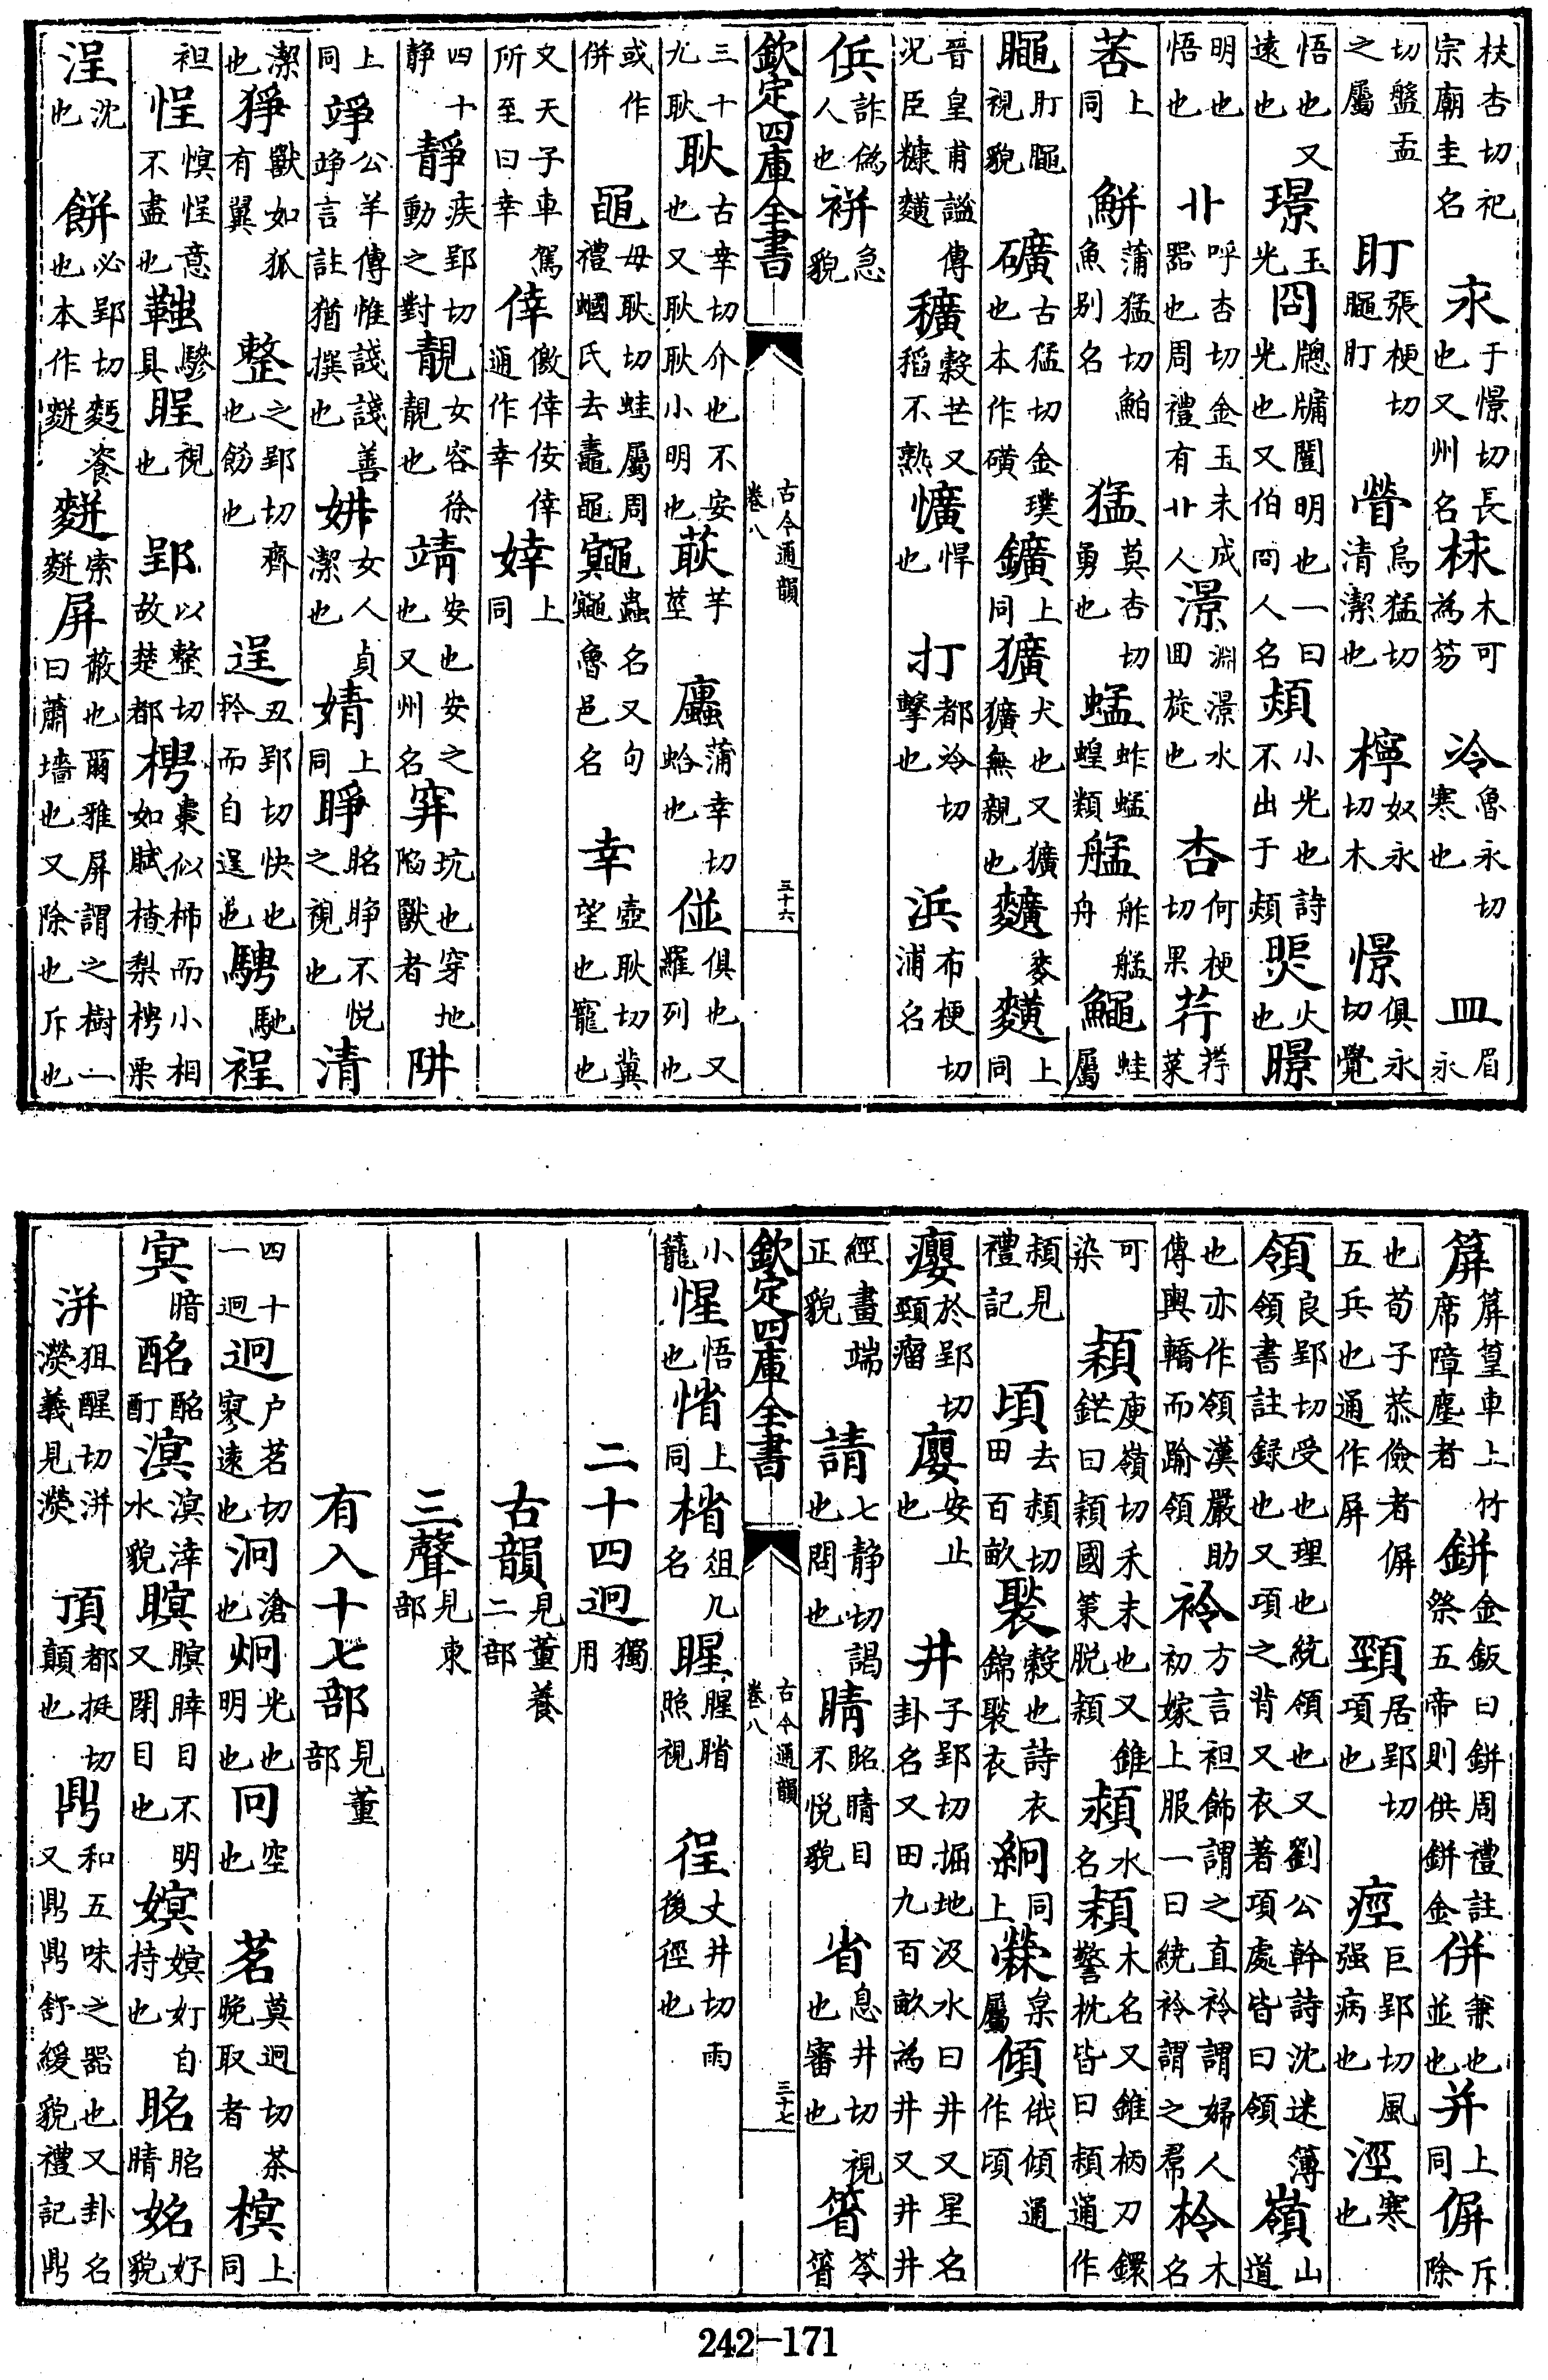 杖杏切祀宗廟圭名 永于憬切長也又州名 㭛木可為笏 冷魯永切寒也 皿眉永
切盤盂之屬 盯張梗切矃盯 䁝烏猛切清潔也 檸奴永切木 憬俱永切覺
悟也又遠也 璟玉光 冏牕牖闓明也一曰光也又伯冏人名 熲小光也詩不出于熲 煚火也 暻
明也悟也 卝呼杏切金玉未成器也周禮有卝人 澋淵澋水回旋也 杏何梗切果 荇荇菜
莕上同 鮩蒲猛切鮊魚别名 猛莫杏切勇也 蜢蚱蜢蝗類 艋舴艋舟 鱦蛙屬
盯黽視貌 礦古猛切金璞也本作磺 鑛上同 獷犬也又獷獷無親也 䵃麥 䵃上同
晉皇甫謐傳况臣糠䵃 穬穀芒又稻不熟 懭悍也 打都冷切擊也 浜布梗切浦名
㑂詐偽人也 䘰急貌
欽定四庫全書 古今通韻卷八 三十六
三十九耿 耿古幸切介也不安也又耿耿小明也 䓳芋莖 蠯蒲幸切蛤也 倂俱也又羅列也
或作併 黽母耿切蛙屬周禮蟈氏去鼃黽 鼆蟲名又句鼆魯邑名 幸壺耿切冀望也寵也
又天子車駕所至曰幸 倖儌倖佞倖通作幸 婞上同
四十靜 靜疾郢切動之對 靚女容徐靚也 靖安也安之也又州名 穽坑也穿地陷獸者 阱
上同 竫公羊傳惟諓諓善竫言註猶撰也 妌女人貞潔也 婧上同 睜眳睜不悦之視也 清
潔也 猙獸如狐有翼 整之郢切齊也飭也 逞丑郢切快也矜而自逞也 騁馳 裎
袒 悜慏悜意不盡也 鞓驂具 睈視也 郢以整切故楚都 梬棗似柿而小相如賦楂梨梬栗
浧沈也 餅必郢切麪餈也本作䴵 䴵索䴵 屏蔽也爾雅屏謂之樹一曰蕭墻也又除也斥也
箳箳篁車上竹席障塵者 鉼金鈑曰鉼周禮註祭五帝則供鉼金 併兼也並也 并上同 偋斥除
也荀子恭儉者偋五兵也通作屏 頸居郢切項也 痙巨郢切風强病也 涇寒也
領良郢切受也理也統領也又劉公幹詩沈迷簿領書註録也又項之背又衣著項處皆曰領 嶺山道
也亦作領漢嚴助傳輿轎而踰領 袊方言袒飾謂之直袊謂婦人初嫁上服一曰繞袊謂之帬 柃木名
可染 穎庾嶺切禾末也又錐鋩曰穎國策脱穎 潁水名 頴木名又錐柄刀鐶警枕皆曰頴通作
熲見禮記 頃去熲切田百畝 褧縠也詩衣錦褧衣 絅同上 檾枲屬 傾俄傾通作頃
癭於郢切頸瘤 廮安止也 井子郢切掘地汲水曰井又星名卦名又田九百畝為井又井井
經畫端正貌 請七靜切謁也問也 䝼眳睛目不悦貌 省息井切視也審也 箵笭箵
欽定四庫全書 古今通韻卷八 三十七
小籠 惺悟也 㥠上同 㮐俎几名 睲睲䁞照視 徎丈井切雨後徑也
二十四迥獨用
古韻見董養二部
三聲見東部
有入十七部見董部
四十一迥 迥户茗切寥遠也 泂滄也 炯光也明也 冋空也 茗莫迥切茶晚取者 榠上同
冥暗 酩酩酊 溟溟涬水貌 瞑瞑睟目不明又閉目也 嫇嫇奵自持也 眳眳睛 姳好貌
洴狙醒切洴濙義見濙 頂都挺切顛也 鼎和五味之器也又卦名又鼎鼎舒緩貌禮記鼎
242-171